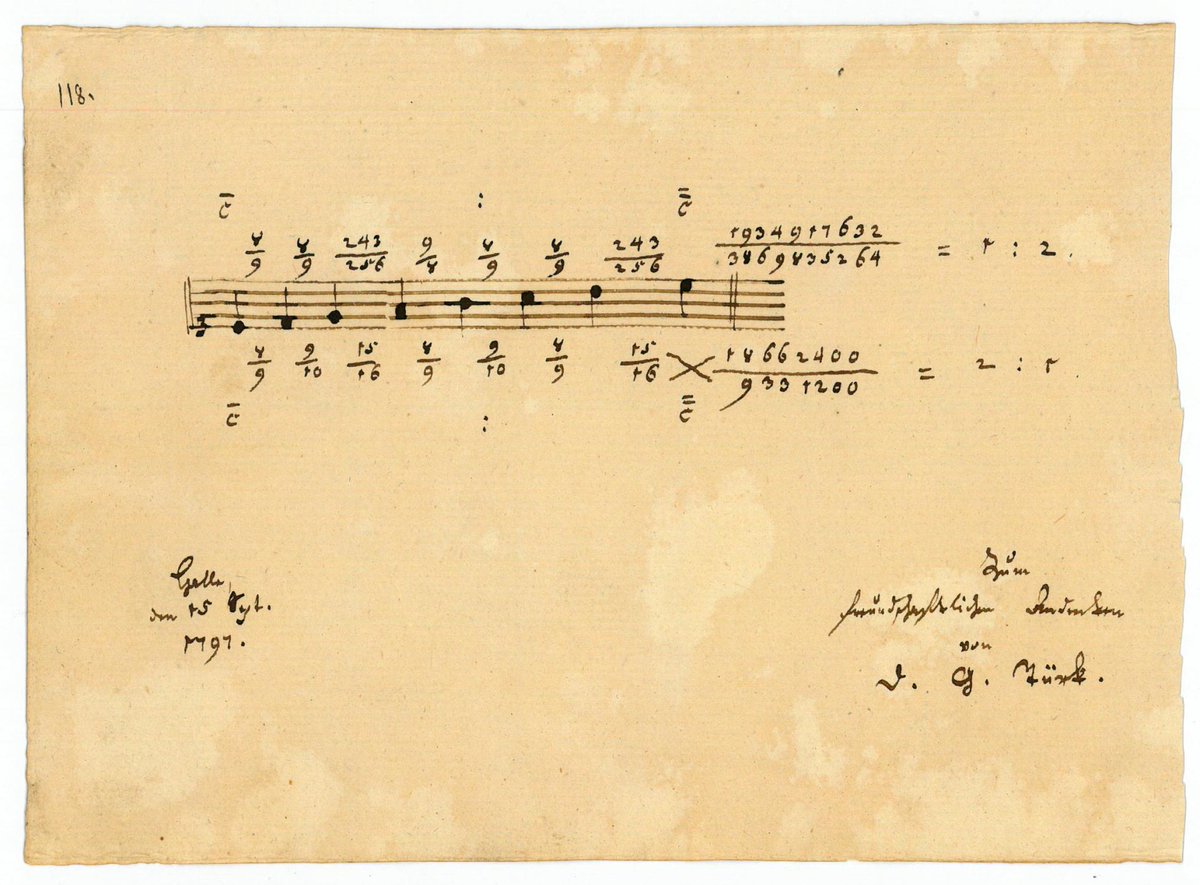 118.
c̄ : c̿
8/9 8/9 243/256 9/8 8/9 8/9 243/256 1934917632/3869835264 = 1 : 2.
8/9 9/10 15/16 8/9 9/10 8/9 15/16 18662400/9331200 = 2 : 1.
c̄ : c̿
Halle,
den 15 Sept.
1797.
Zum
freundschaftlichen Andenken
von
D. G. Türk.